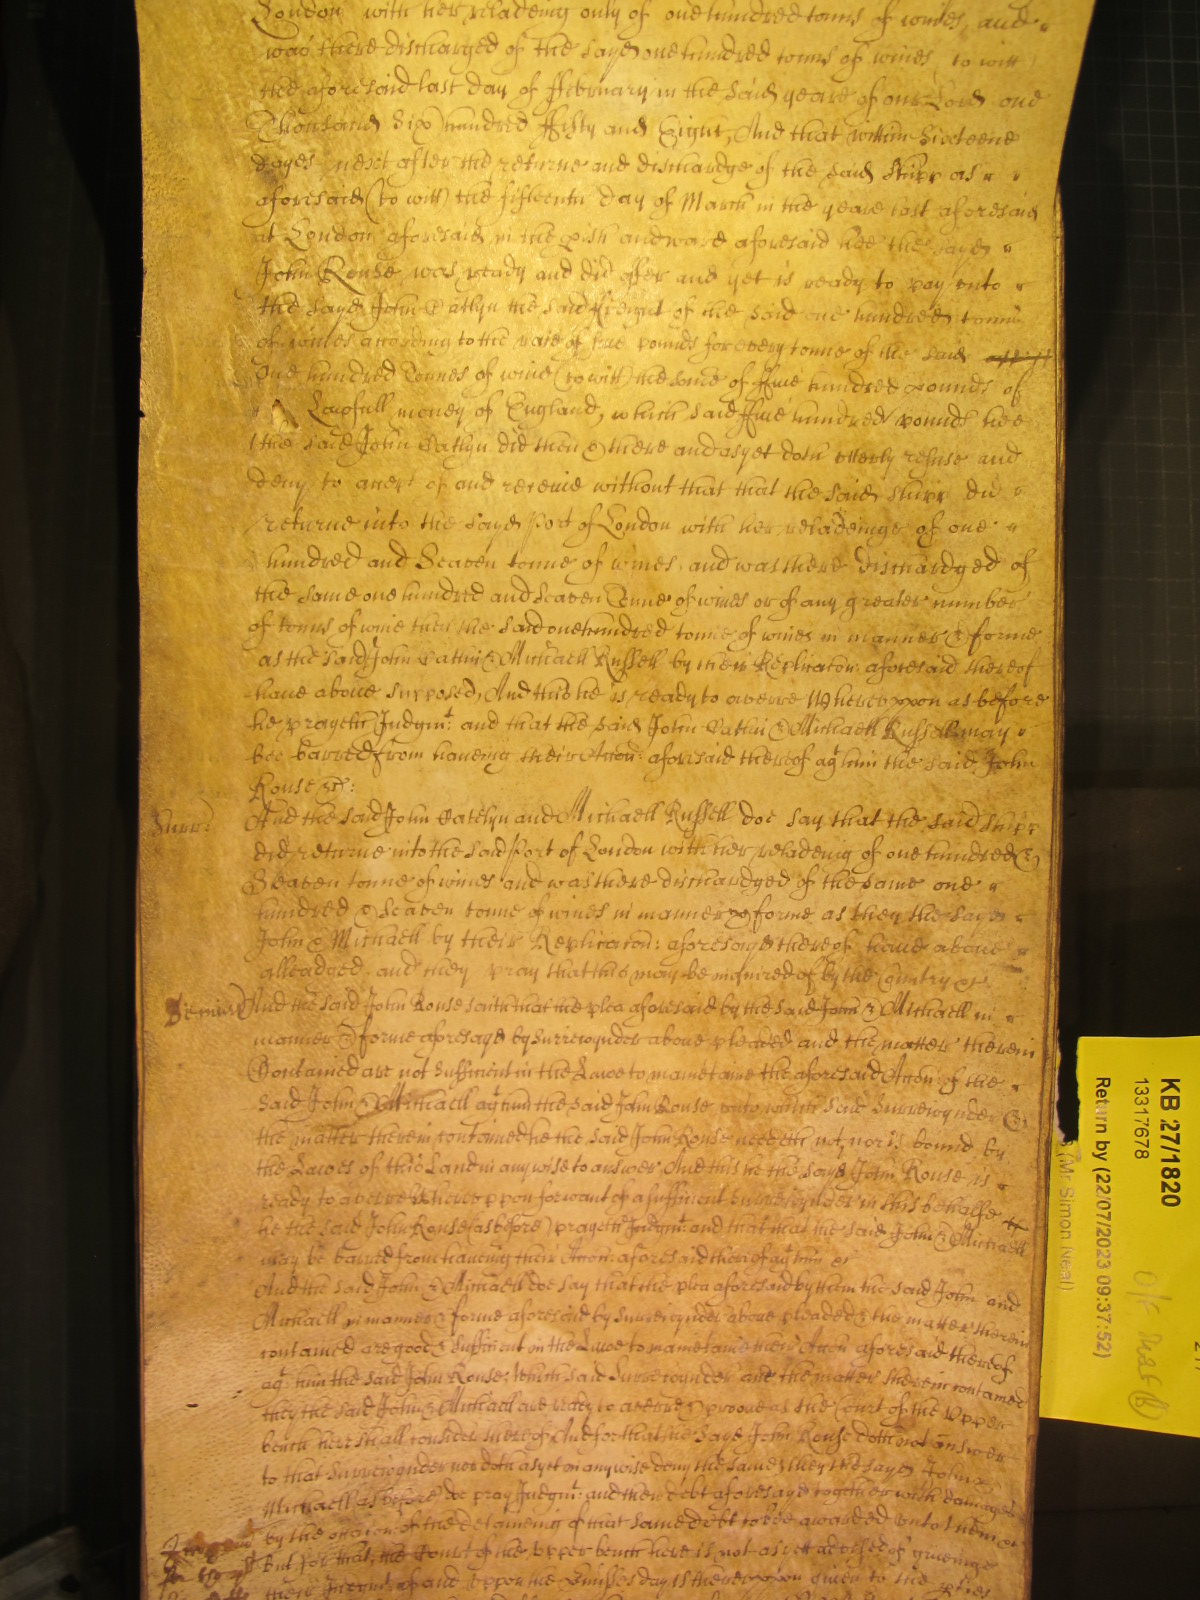 London with her reladeing only of one hundred tonns of wines, and
was there discharged of the sayd one hundred tonns of wines, to witt
the aforesaid last day of ffebruary in the said yeare of our Lord one
Thousand Six hundred ffifty and Eight, And that within Sixteene
dayes next after the returne and dischardge of the said Shipp as
aforesaid (to witt) the fifteenth day of March in the yeare last aforesaid
at London aforesaid in the pish and ward aforesaid hee the sayd
John Rouse was ready and did offer and yet is ready to pay unto
the sayd John Catlyn the said freight of the said one hundred tonns
of wines according to the rate of five pounds for every tonne of the said
One hundred Tonnes of wine (to witt) the some of ffive hundred pounds of
Lawfull money of England, which said ffive hundred pounds hee
the said John Catlyn did then & there and as yet doth utterly refuse and
deny to accept of and receive without that that the said shipp did
returne into the sayd Port of London with her reladeinge of one
hundred and Seaven tonne of wines and was there dischardged of
the same one hundred and seaven Tonne of wines or of any greater number
of tonns of wine then the said one hundred tonne of wines in manner & forme
as the said John Catlin & Michaell Russell by their Replicacon aforesaid thereof
have above supposed, And this he is ready to averre Whereuppon as before
he prayeth Judgmt: and that the said John Catlin & Michaell Russell may
bee barred from haveing their Accon: aforesaid thereof agt him the said John
Rouse &c:
Surr:
And the said John Catelyn and Michaell Russell doe say that the said shipp
did returne into the said Port of London with her reladeing of one hundred &
Seaven tonne of wines and was there dischardged of the same one
hundred & seaven tonne of wines in manner & forme as they the sayd
John & Michaell by their Replicacon: aforesayd thereof have above
alleadged and they pray that this may be inquired of by the Cuntry &c
Demurr
And the said John Rouse saith that the plea aforesaid by the said John & Michaell in
manner & forme aforesayd by Surrejoynder above pleaded and the matter therein
Contained are not Sufficient in the Lawe to mainetaine the aforesaid Accon: of the
said John & Michaell agt him the said John Rouse unto which said Surrejoynder &
the matter therein contained he the said John Rouse needeth not, nor is bound by
the Lawes of this Land in any wise to answer And this he the sayd John Rouse is
ready to averre Whereuppon for want of a sufficient surrejoynder in this behalfe
he the said John Rouse (as before) prayeth Judgmt: and that that the said John & Michaell
may be barred from haveing their Accon: aforesaid thereof agt him &c
And the said John & Michaell doe say that the plea aforesaid by them the said John and
Michaell in manner & forme aforesaid by Surrejoynder above pleaded & the matter therein
contained are good & sufficient in the Lawe to mainetaine their Accon aforesaid thereof
agt him the said John Rouse, Which said Surrejoynder and the matter therein contained
they the said John & Michaell are ready to averre & proove as the Court of the Upper
bench here shall consider thereof And for that the sayd John Rouse doth not answer
to that Surrejoynder nor doth as yet in any wise deny the same, they the sayd John &
Michaell as before doe pray Judgmt: and their debt aforesayd together with damages
by the occasion of the detaineing of that same debt to be awarded unto them &c
But for that, the Court of the upper bench here is not as yet advised of giveinge
their Judgmt: of and uppon the pmisses day is thereuppon given to the pties
KB 27/1820
13317678
Return by (22/07/2023 09:37:52)
(Mr Simon Neal)